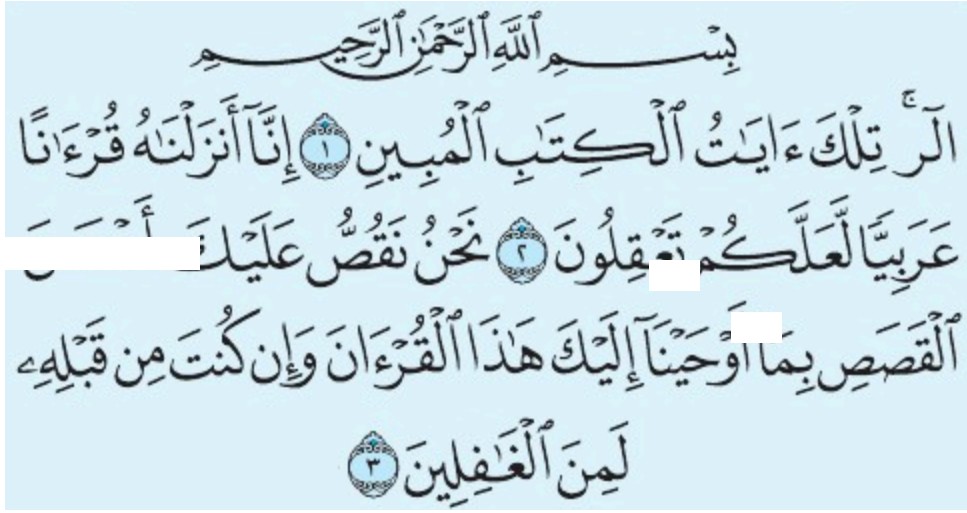 بِسْمِ ٱللَّهِ ٱلرَّحْمَٰنِ ٱلرَّحِيمِ
الٓرۚ تِلْكَ ءَايَٰتُ ٱلْكِتَٰبِ ٱلْمُبِينِ ١ إِنَّآ أَنزَلْنَٰهُ قُرْءَٰنًا
عَرَبِيًّا لَّعَلَّكُمْ تَعْقِلُونَ ٢ نَحْنُ نَقُصُّ عَلَيْكَ
ٱلْقَصَصِ بِمَا اَوْحَيْنَآ إِلَيْكَ هَٰذَا ٱلْقُرْءَانَ وَإِن كُنتَ مِن قَبْلِهِۦ
لَمِنَ ٱلْغَٰفِلِينَ ٣